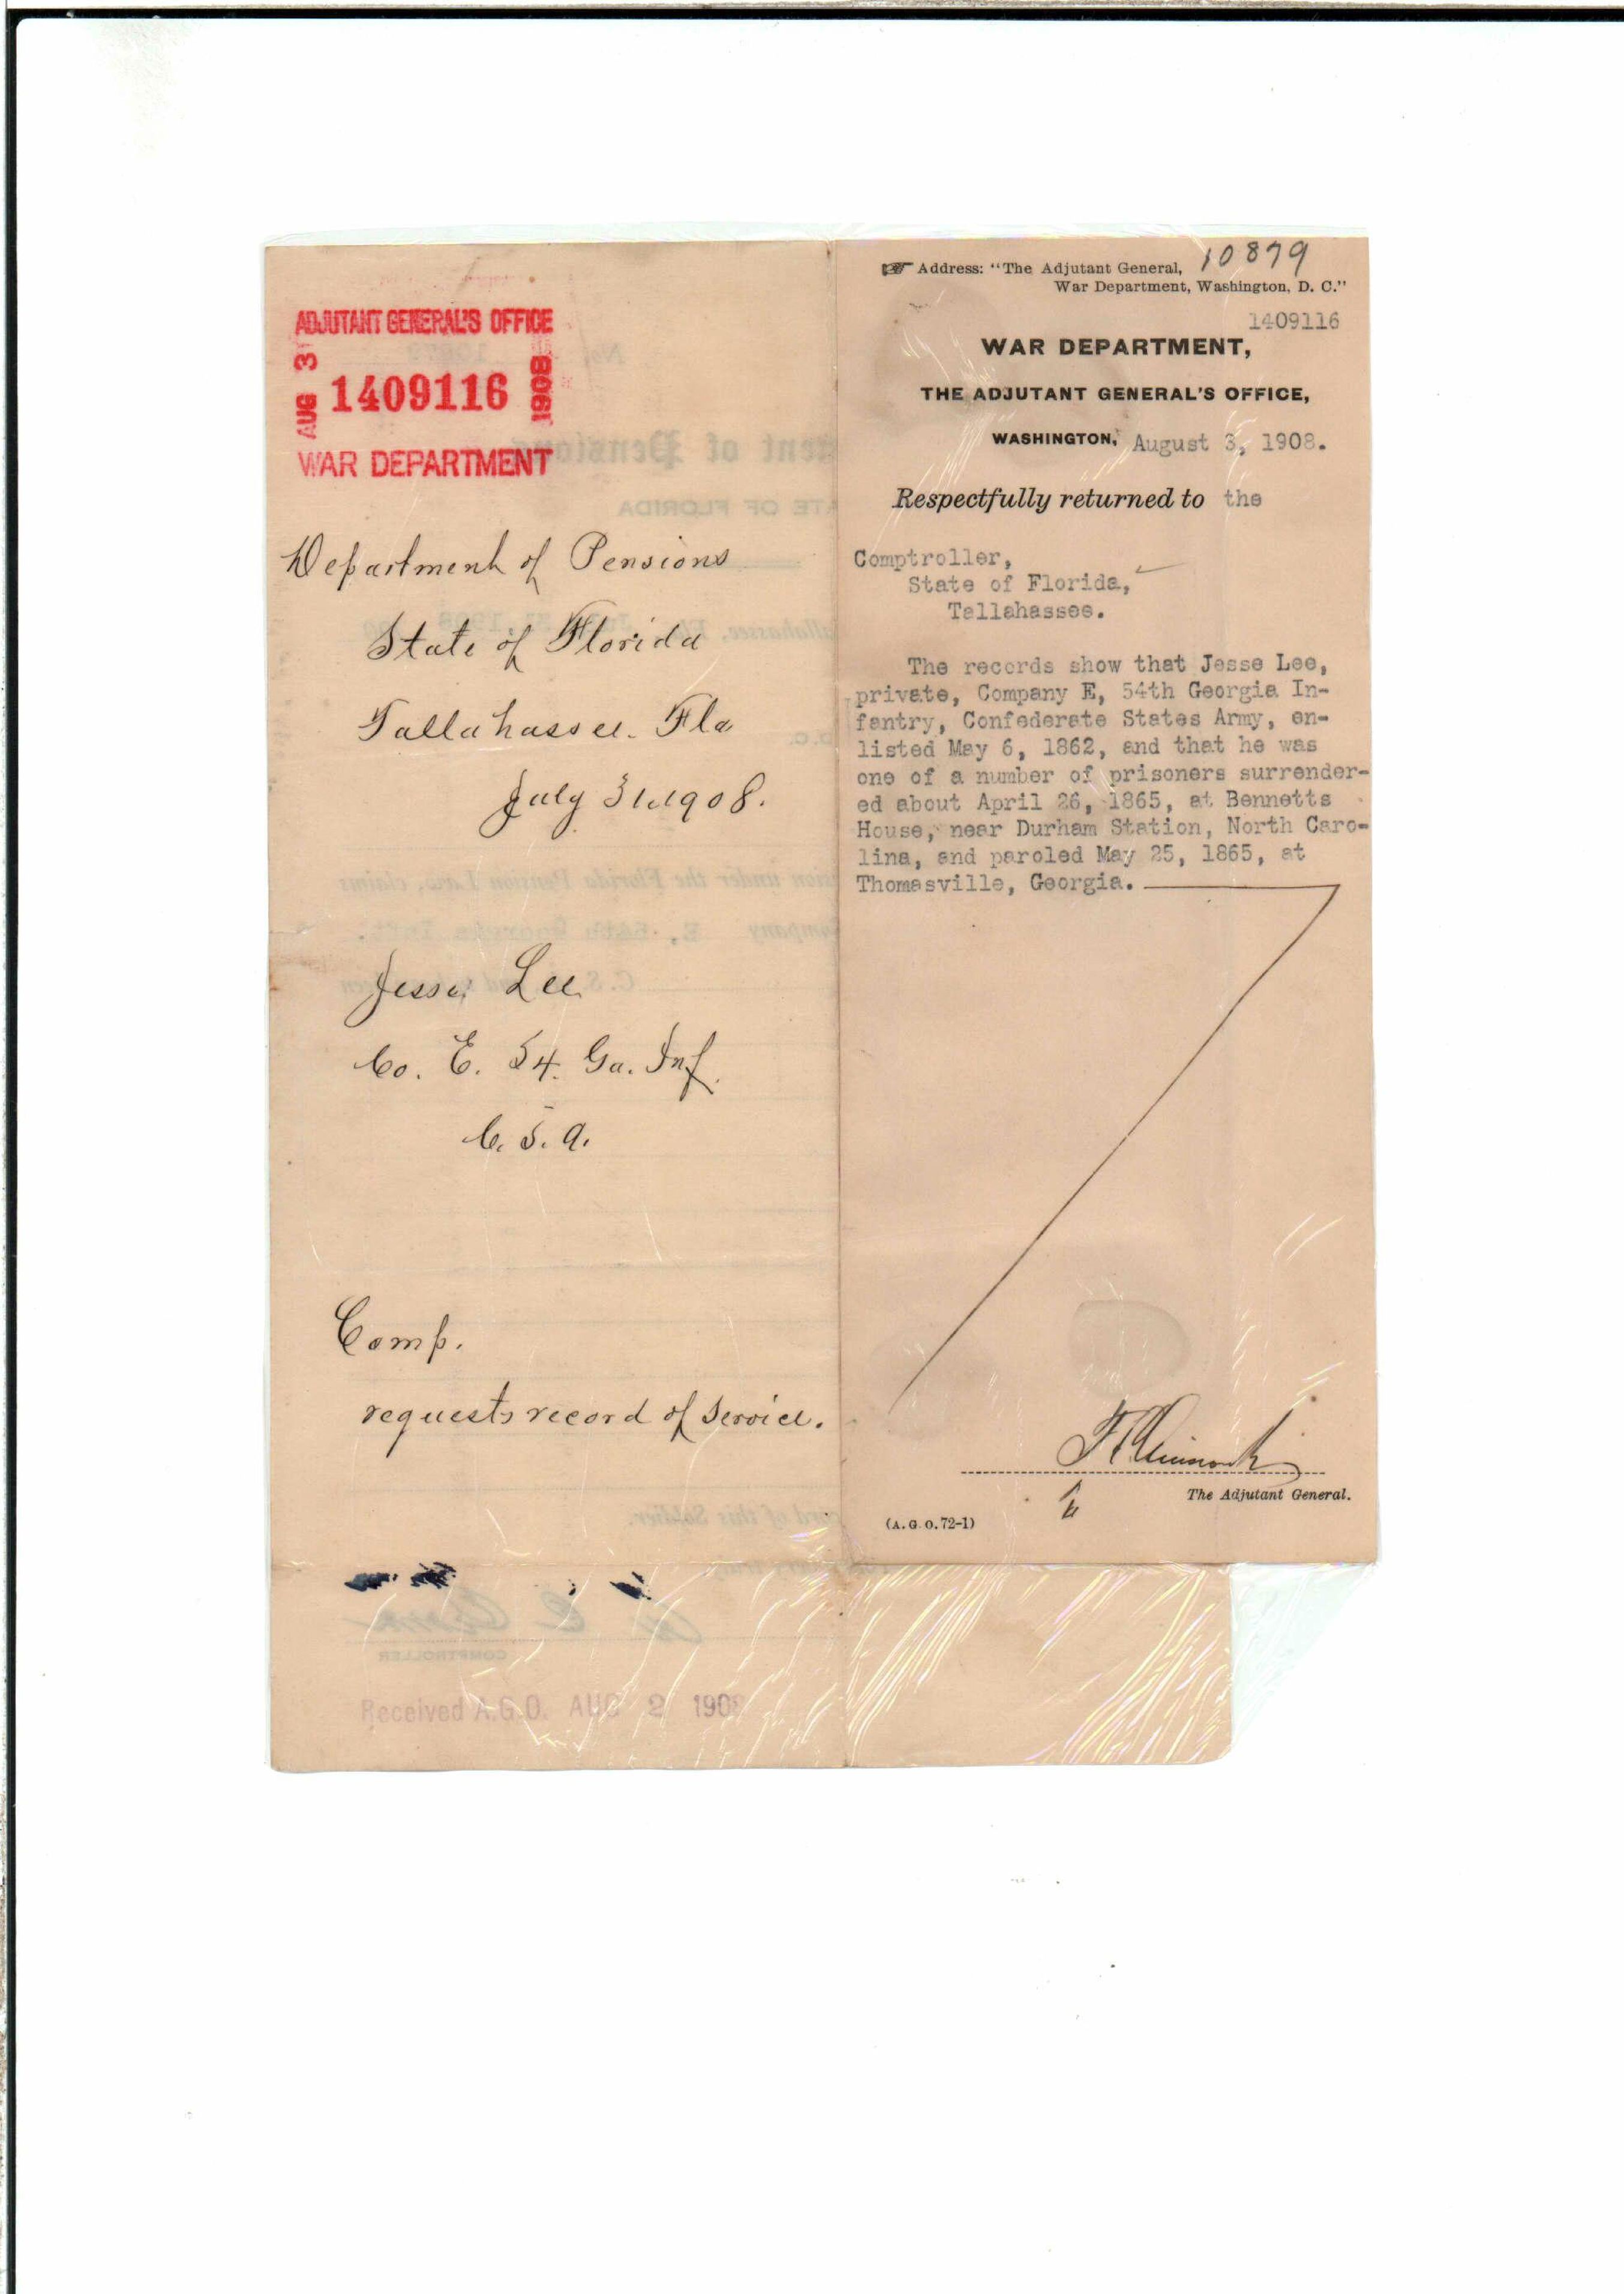 ADJUTANT GENERAL'S OFFICE
AUG 3 1409116 1908
WAR DEPARTMENT
Department of Pensions
State of Florida
Tallahassee. Fla
July 31. 1908.
Jesse Lee
Co. E. 54. Ga. Inf.
C. S. A.
Comp.
requests record of service.
COMPTROLLER
Received A.G.O. AUG 2 1908
10879
Address: "The Adjutant General,
War Department, Washington, D. C."
1409116
WAR DEPARTMENT,
THE ADJUTANT GENERAL'S OFFICE,
WASHINGTON, August 3, 1908.
Respectfully returned to the
Comptroller,
State of Florida,
Tallahassee.
The records show that Jesse Lee,
private, Company E, 54th Georgia In-
fantry, Confederate States Army, en-
listed May 6, 1862, and that he was
one of a number of prisoners surrender-
ed about April 26, 1865, at Bennetts
House, near Durham Station, North Caro-
lina, and paroled May 25, 1865, at
Thomasville, Georgia.
The Adjutant General.
(A. G. O. 72-1)